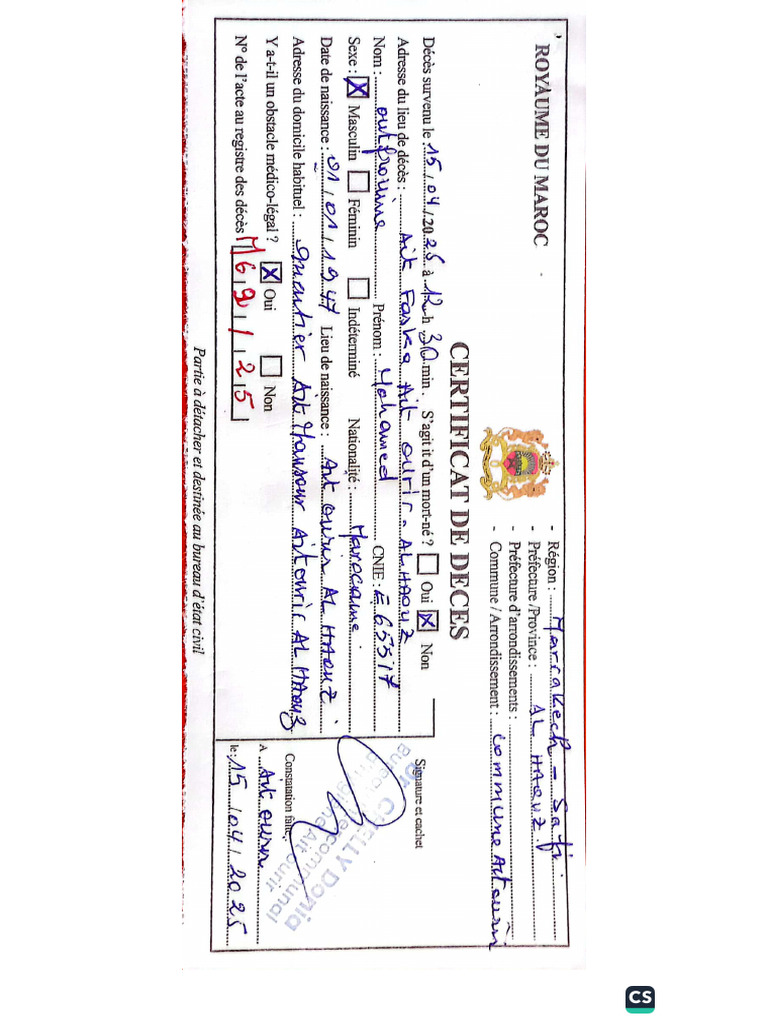 ROYAUME DU MAROC
- Région : Marrakech - Safi.
- Préfecture /Province : AL HAOUZ.
- Préfecture d'arrondissements :
- Commune / Arrondissement : Commune Aitourir
CERTIFICAT DE DECES
Décès survenu le 15/04/2025 à 12 h 30 min. S'agit it d'un mort-né ? Oui X Non
Adresse du lieu de décès : Ait Faska Ait ourir. AL HAOUZ
Nom : Prénom : Mohamed CNIE : E65517
Sexe : X Masculin Féminin Indéterminé Nationalité : Marocaine.
Date de naissance : 01/01/1947 Lieu de naissance : Ait ourir AL HAOUZ.
Adresse du domicile habituel : quartier Ait Mansour Aitourir AL HAOUZ
Y a-t-il un obstacle médico-légal ? X Oui Non
N° de l'acte au registre des décès M 69 / 25
Signature et cachet
Dr. Donia
Bureau communal
d'Hygiène-Ait Ourir
Constatation faite,
A Ait ourir
le : 15/04/2025
Partie à détacher et destinée au bureau d'état civil
CS